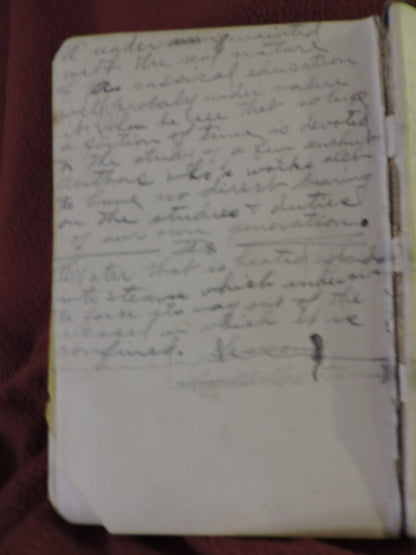 A reader unacquainted
with the real nature
of a classical education
will probaly under value
it when he see that so large
a portion of time is devoted
to the study of a few ancient
authors who's works seem
to have no direct bearing
on the studies & duties
of our own generation.
Water that is heated
into steam which endeavors
to force its way out of the
vessel in which it is
confined.